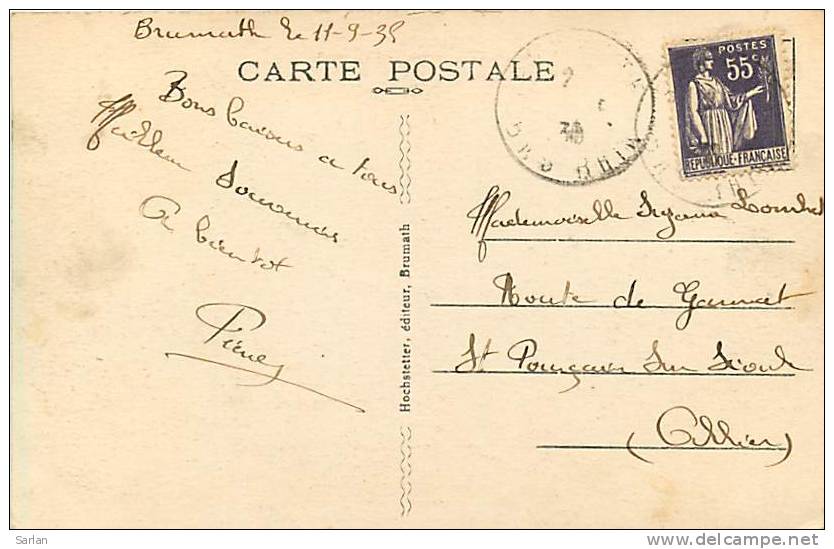 Brumath le 11-9-38
CARTE POSTALE
Bons baisers a tous
Meilleurs Souvenirs
A bientot
Pierre
Hochstetter, éditeur, Brumath
BAS RHIN
POSTES
55 CM
REPUBLIQUE-FRANÇAISE
Mademoiselle Suzanne
Route de Gannat
St Pourçain Sur Sioule
(Allier)
Sarlan
www.delcampe.net